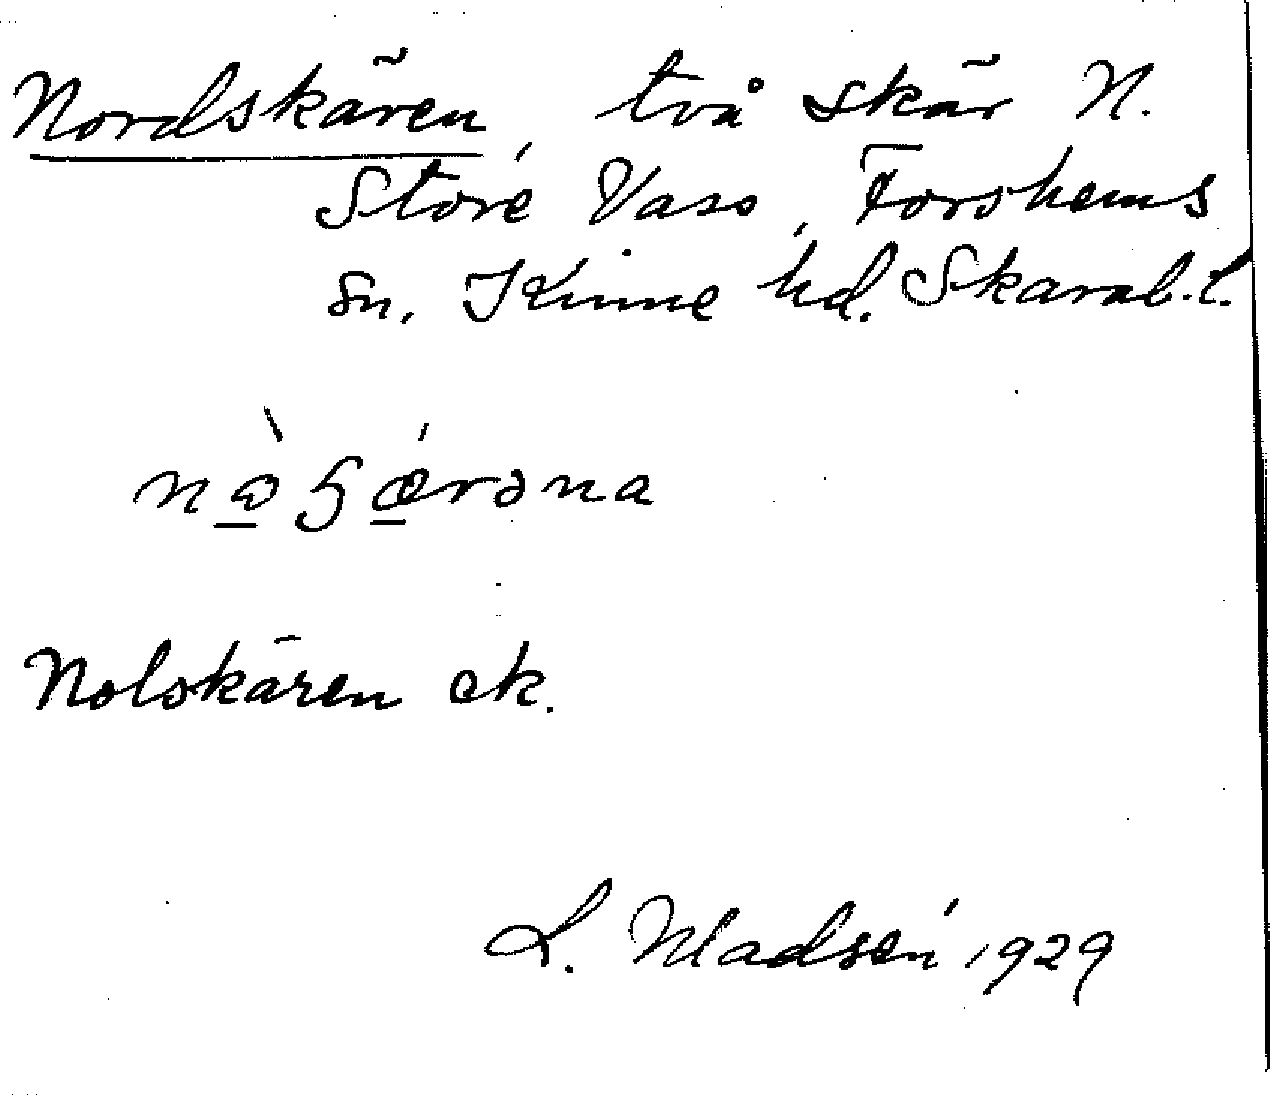 Nordskären, två skär N.
Store Vass, Forshems
sn. Kinne hd. Skarab. l.
Nolskären ek.
L. Madsén 1929